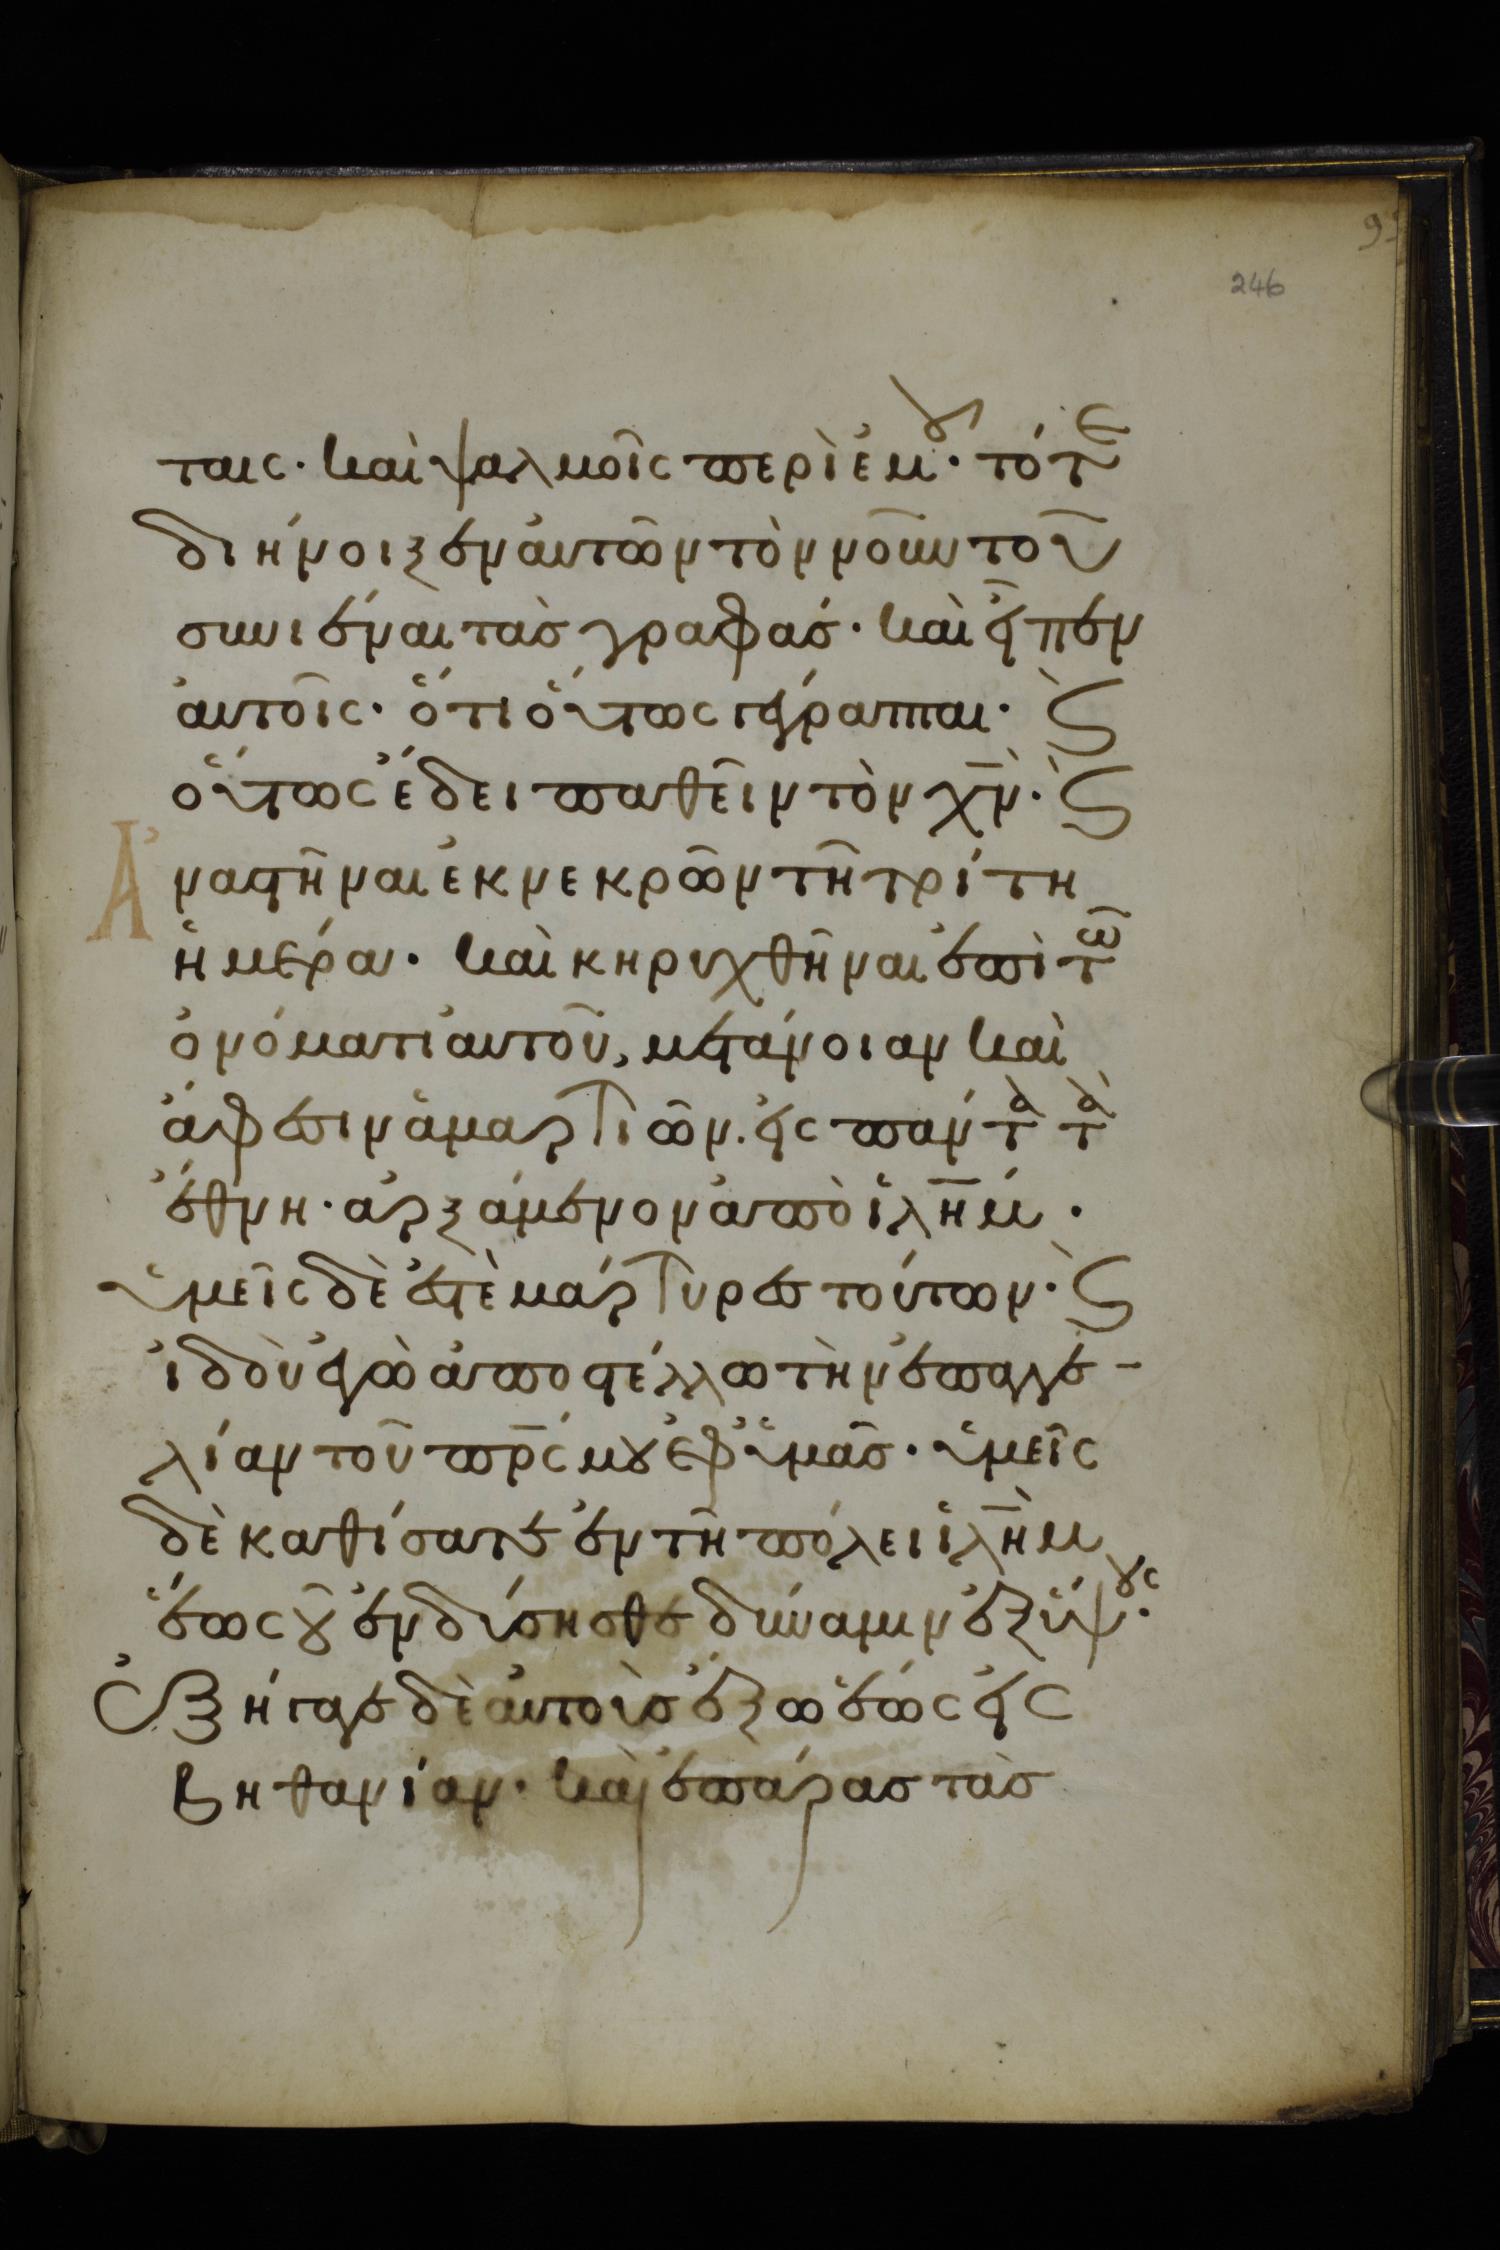 9
246
ταις· καὶ ψαλμοῖς περὶ ἐμοῦ· τότε
διήνοιξεν ἀυτῶν τὸν νοῦν τοῦ
συνιέναι τὰς γραφάς· καὶ εἶπεν
ἀυτοῖς· ὅτι οὕτως γέγραπται· ϗ
οὕτως ἔδει παθεῖν τὸν χ̅ν̅· ϗ
Ἀναστῆναι ἐκ νεκρῶν τῆ τρίτη
ἡμέρα· καὶ κηρυχθῆναι ἐπὶ τῶ
ὀνόματι ἀυτοῦ, μετάνοιαν καὶ
ἄφεσιν ἁμαρτιῶν. εἰς πάντὰ τὰ
ἔθνη· ἀρξάμενον ἀπὸ ἱλ̅η̅μ·
ὑμεῖς δὲ ἐστὲ μάρτυρες τούτων· ϗ
ἰδοὺ ἐγὼ ἀποστέλλω τὴν ἐπαγγε-
λίαν τοῦ π̅ρ̅ς μου ἐφ ὑμᾶς· ὑμεῖς
δὲ καθίσατε ἐν τῆ πόλει ἱλ̅η̅μ
ἕως οὗ ἐνδύσησθε δύναμιν ἐξ ὕψους·
Ἐξήγαγε δὲ ἀυτοὺσ ἔξω ἕως εἰς
βηθανίαν· καὶ ἐπάρας τὰς